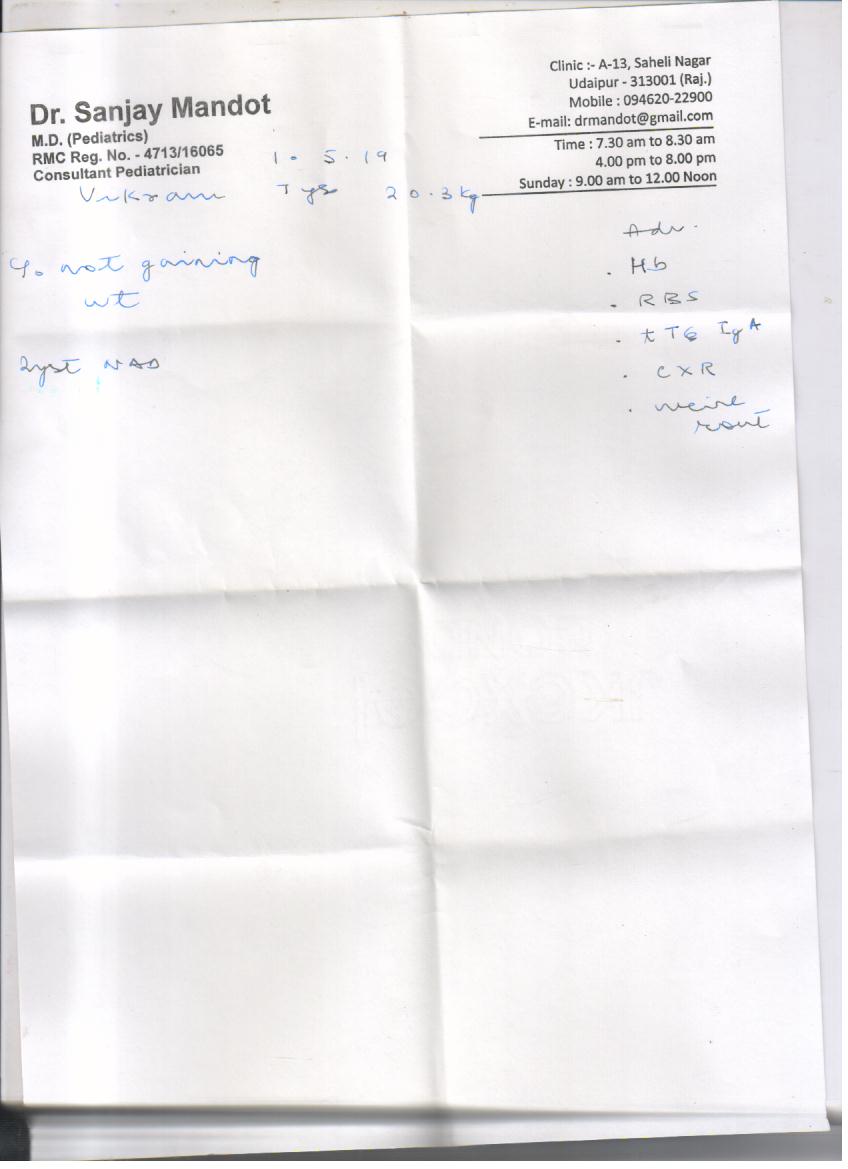 Dr. Sanjay Mandot
M.D. (Pediatrics)
RMC Reg. No. - 4713/16065
Consultant Pediatrician
Clinic :- A-13, Saheli Nagar
Udaipur - 313001 (Raj.)
Mobile : 094620-22900
E-mail: drmandot@gmail.com
Time : 7.30 am to 8.30 am
4.00 pm to 8.00 pm
Sunday : 9.00 am to 12.00 Noon
1. 5. 19
Vikram 20.3kg
not gaining
wt
NAD
Adv.
. Hb
. RBS
. tTG IgA
. CXR